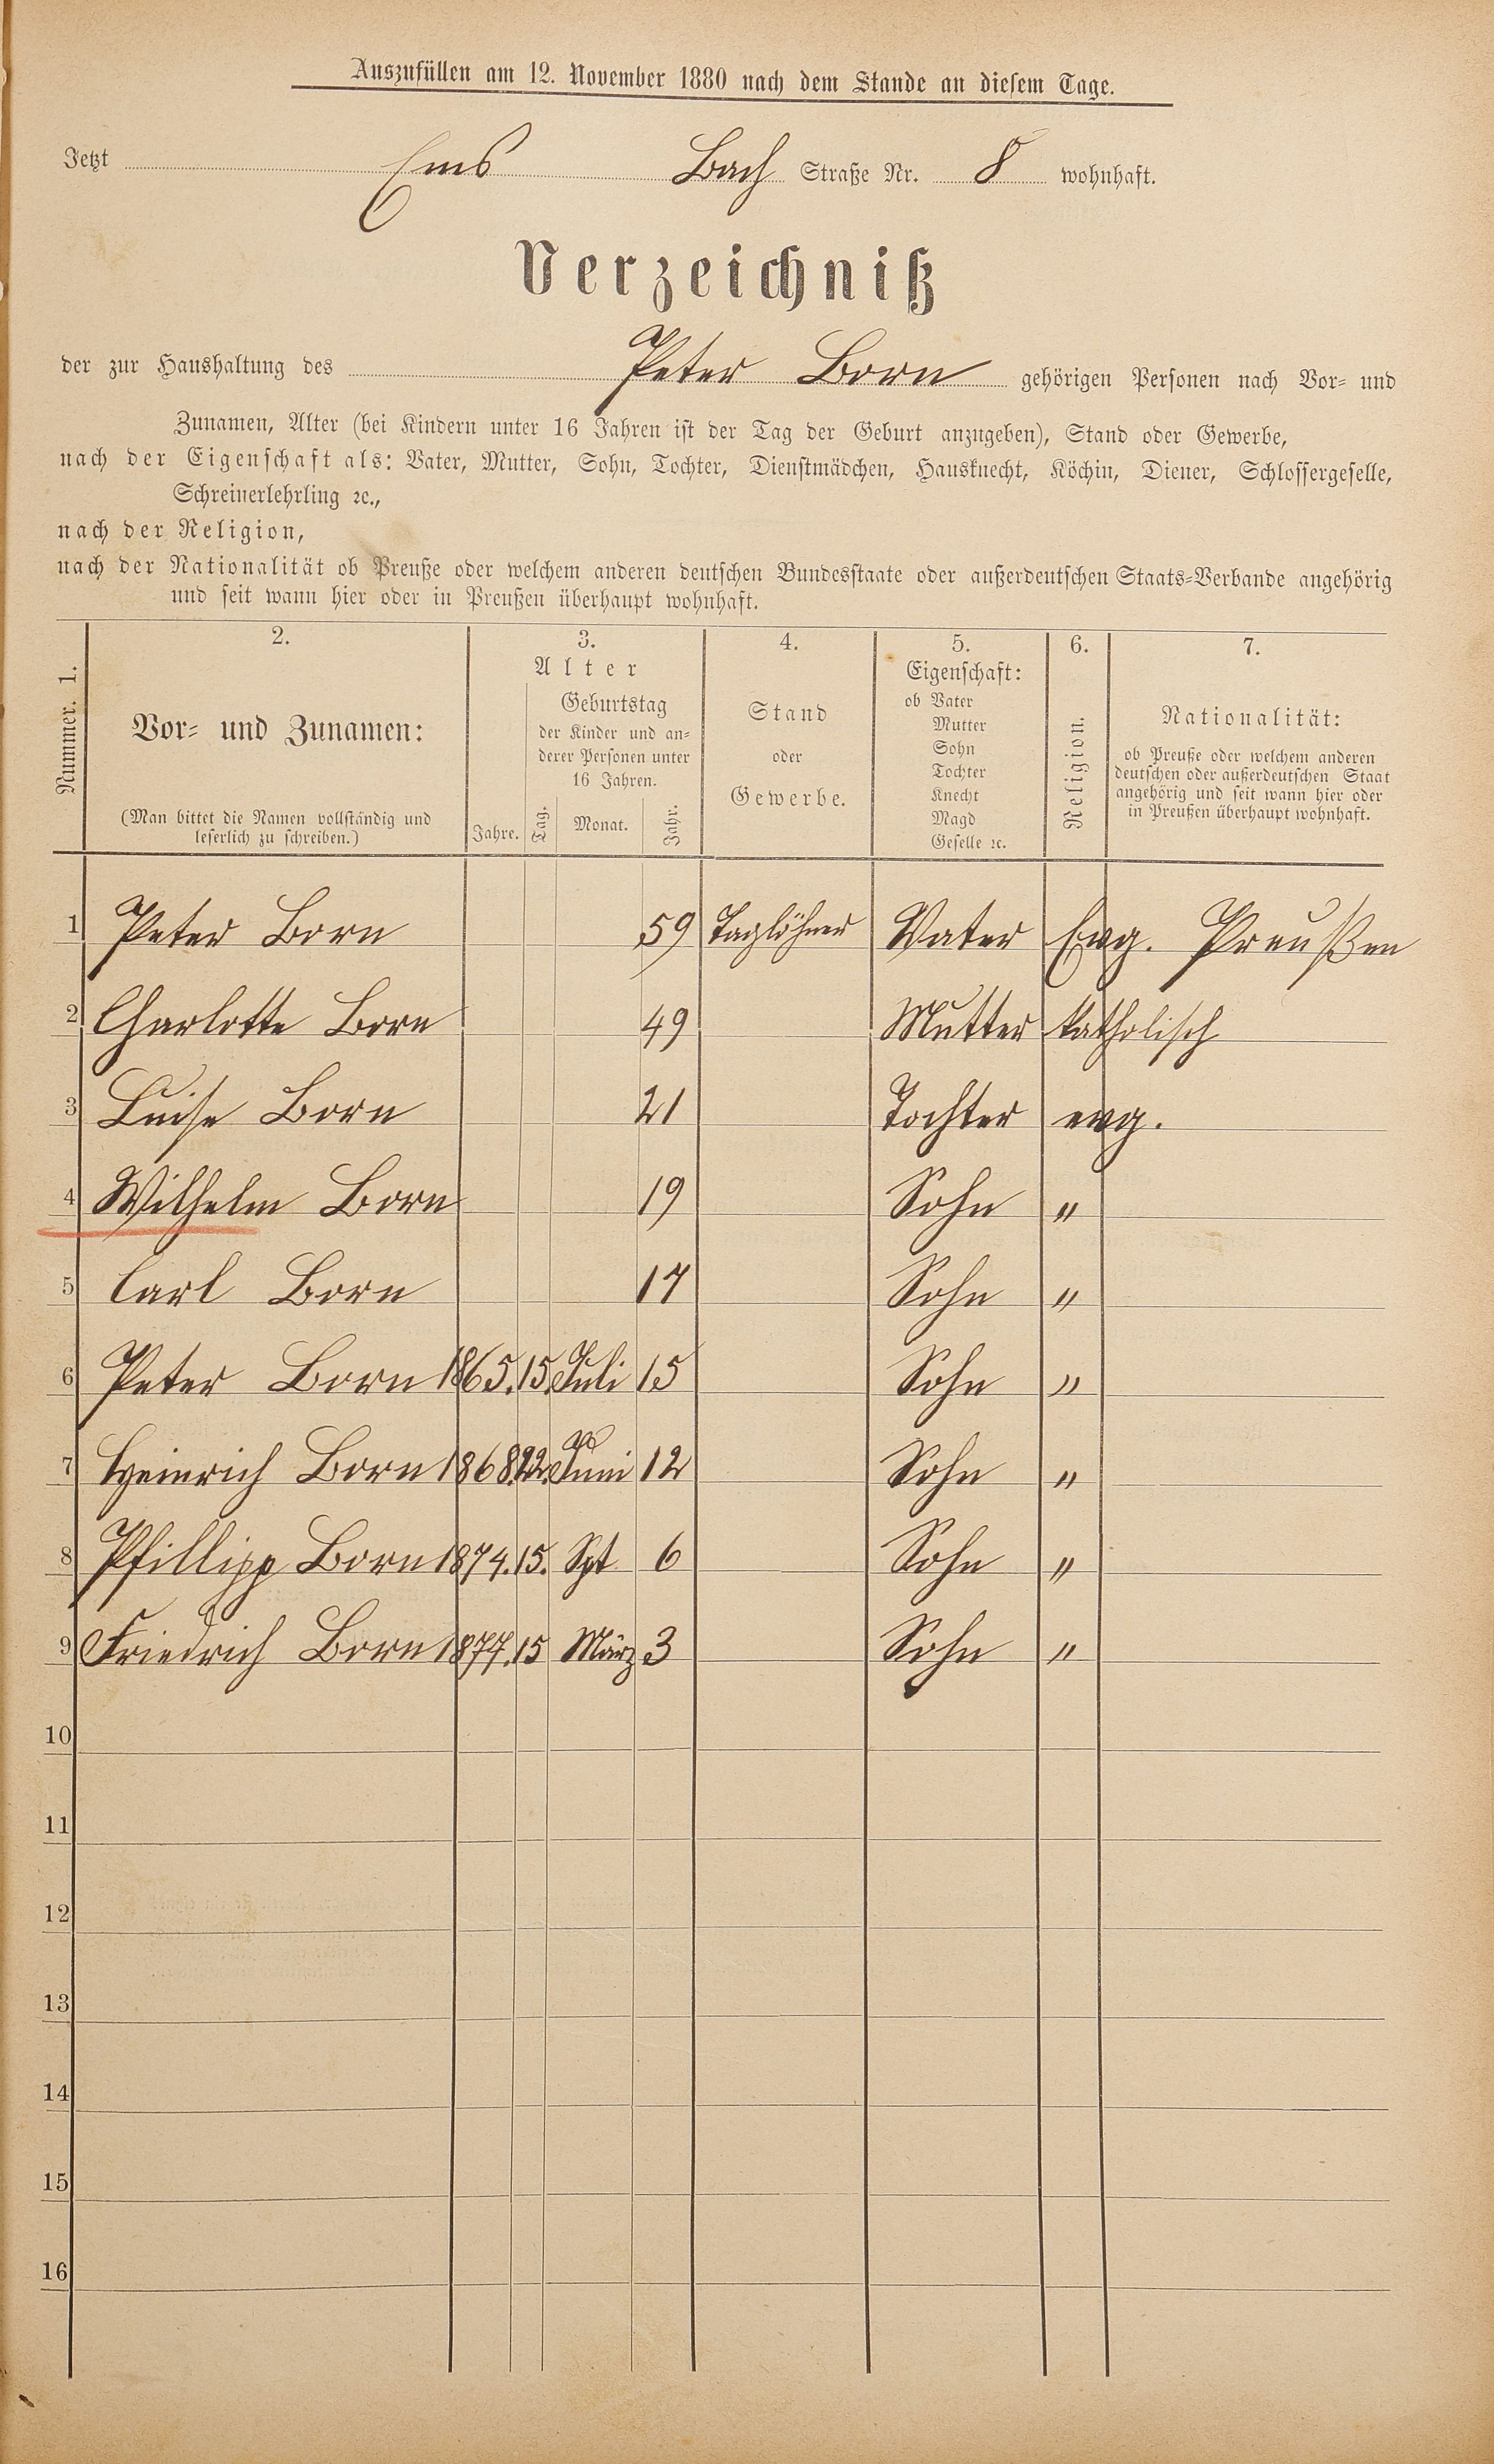 Auszufüllen am 12. November 1880 nach dem Stande an diesem Tage.
Jetzt Ems Bach Straße Nr. 8 wohnhaft.
Verzeichniß
der zur Haushaltung des Peter Born gehörigen Personen nach Vor- und
Zunamen, Alter (bei Kindern unter 16 Jahren ist der Tag der Geburt anzugeben), Stand oder Gewerbe,
nach der Eigenschaft als: Vater, Mutter, Sohn, Tochter, Dienstmädchen, Hausknecht, Köchin, Diener, Schlossergeselle,
Schreinerlehrling ꝛc.,
nach der Religion,
nach der Nationalität ob Preuße oder welchem anderen deutschen Bundesstaate oder außerdeutschen Staats-Verbande angehörig
und seit wann hier oder in Preußen überhaupt wohnhaft.
Nummer. 1.
2.
Vor- und Zunamen:
(Man bittet die Namen vollständig und
leserlich zu schreiben.)
3.
Alter
Jahre.
Geburtstag
der Kinder und an-
derer Personen unter
16 Jahren.
Tag. Monat. Jahr.
4.
Stand
oder
Gewerbe.
5.
Eigenschaft:
ob Vater
Mutter
Sohn
Tochter
Knecht
Magd
Geselle ꝛc.
6.
Religion.
7.
Nationalität:
ob Preuße oder welchem anderen
deutschen oder außerdeutschen Staat
angehörig und seit wann hier oder
in Preußen überhaupt wohnhaft.
1 Peter Born 59 Taglöhner Vater Evg. Preußen
2 Charlotte Born 49 Mutter katholisch
3 Luise Born 21 Tochter evg.
4 Wilhelm Born 19 Sohn "
5 Carl Born 17 Sohn "
6 Peter Born 1865. 15. Juli 15 Sohn "
7 Heinrich Born 1868. 22. Juni 12 Sohn "
8 Pfillipp Born 1874. 15. Spt 6 Sohn "
9 Friedrich Born 1877. 15 März 3 Sohn "
10
11
12
13
14
15
16